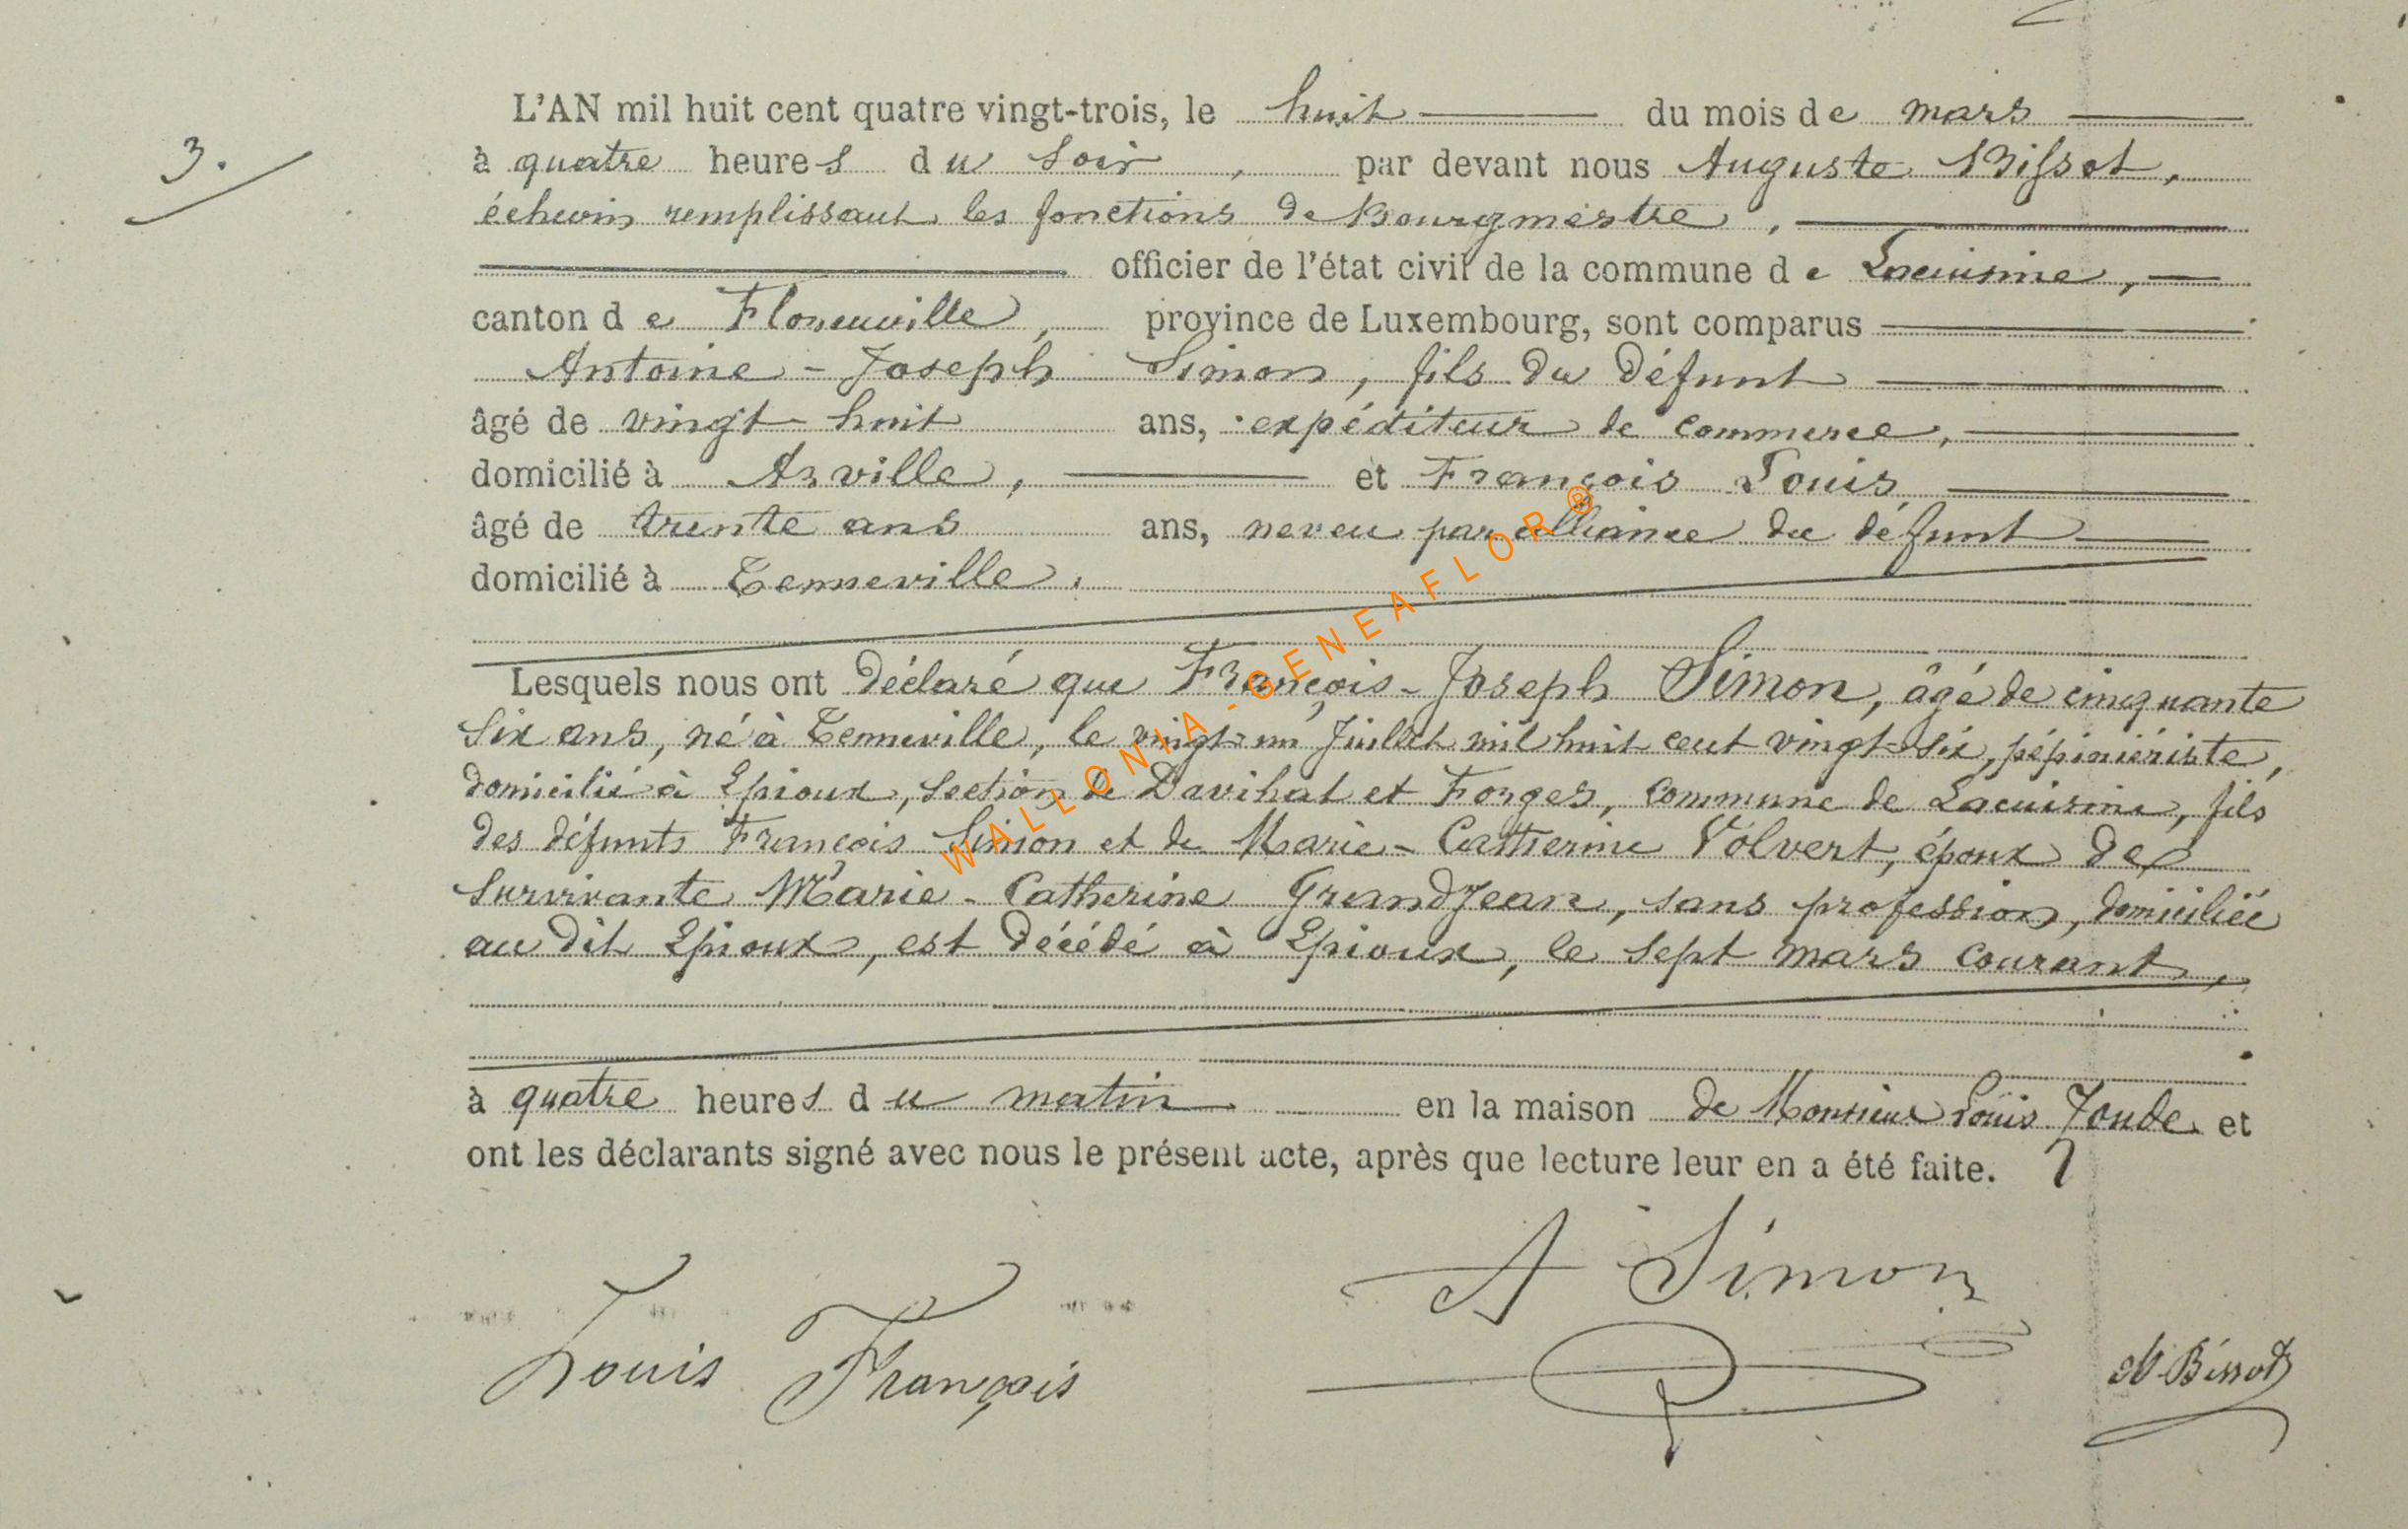 3.
L'AN mil huit cent quatre vingt-trois, le huit du mois de mars
à quatre heures du soir, par devant nous Auguste Bissot,
échevin remplissant les fonctions de Bourgmestre,
officier de l'état civil de la commune de Lacuisine,
canton de Florenville, province de Luxembourg, sont comparus
Antoine-Joseph Simon, fils du défunt
âgé de vingt-huit ans, expéditeur de commerce,
domicilié à Arville, et François Louis
âgé de trente ans ans, neveu par alliance du défunt
domicilié à Tenneville.
Lesquels nous ont déclaré que François-Joseph Simon, âgé de cinquante
six ans, né à Tenneville, le vingt-un Juillet mil huit cent vingt-six, pépiniériste,
domicilié à Epioux, section de et Forges, commune de Lacuisine, fils
des défunts François Simon et de Marie-Catherine Volvert, époux de
survivante Marie-Catherine Grandjean, sans profession, domiciliée
au dit Epioux, est décédé à Epioux, le sept mars courant,
à quatre heures du matin en la maison de Monsieur Louis et
ont les déclarants signé avec nous le présent acte, après que lecture leur en a été faite.
A Simon
Louis François
Bissot
WALLONIA-GENEAFLOR®